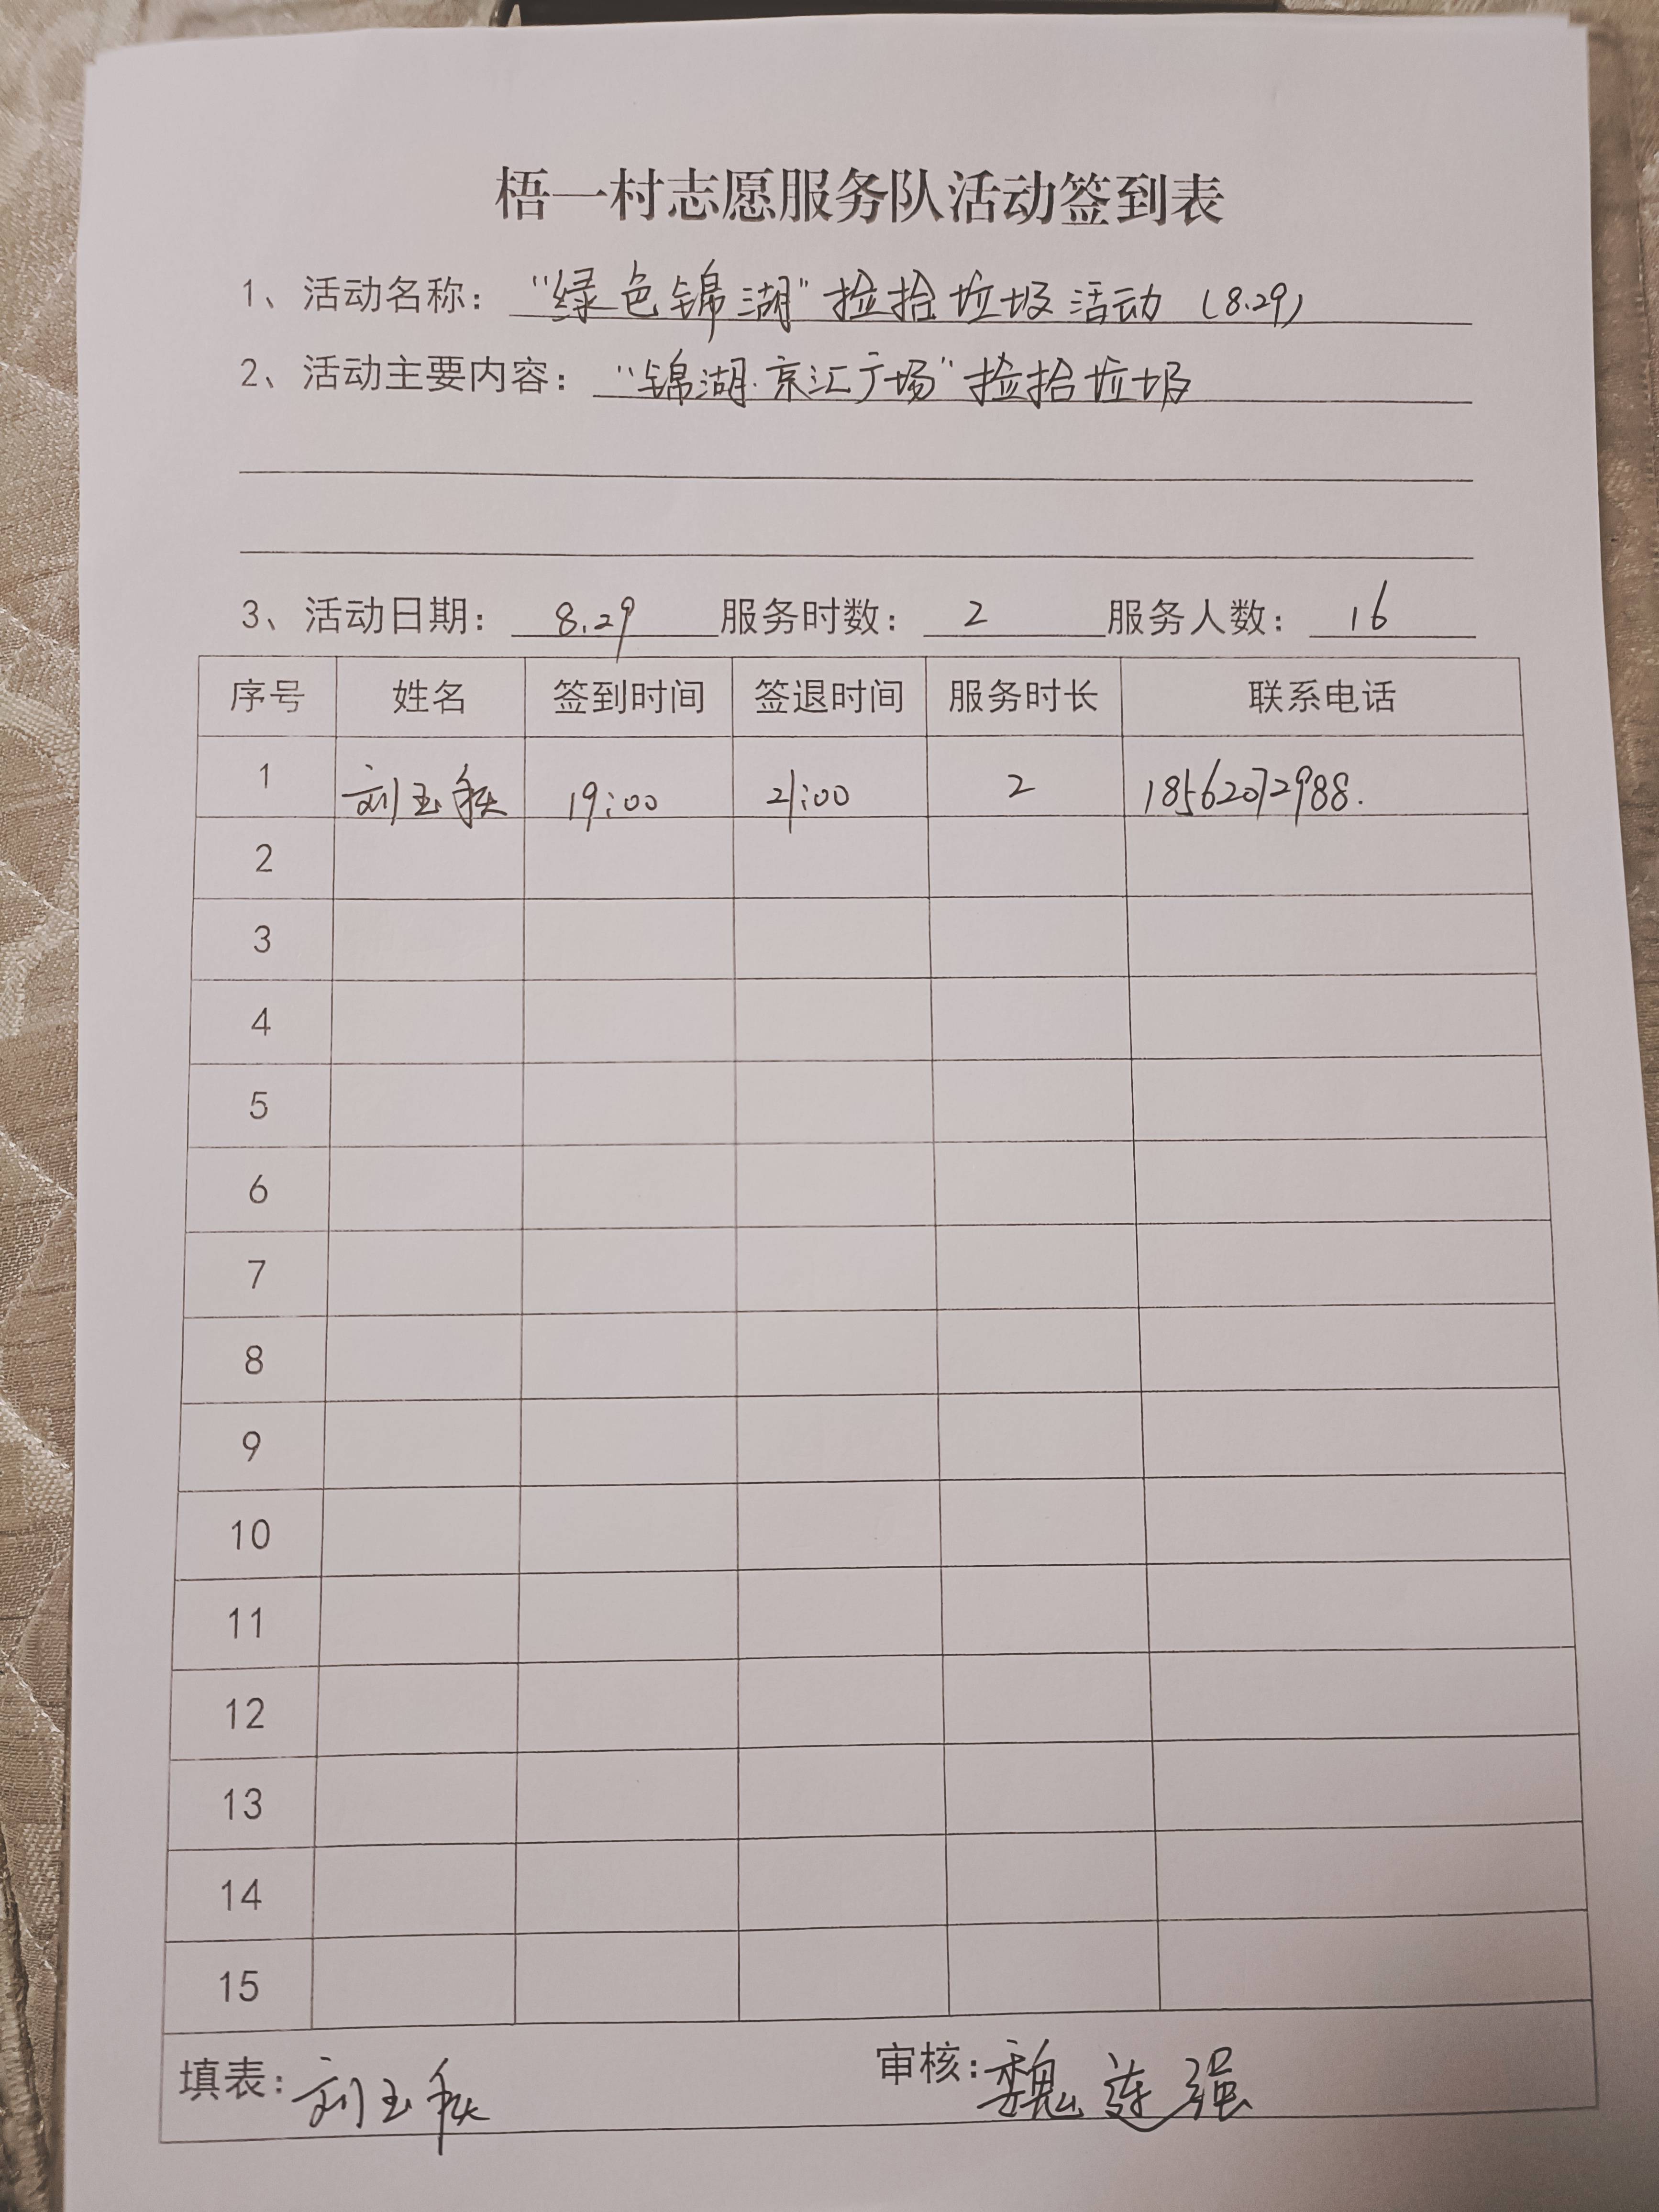 梧一村志愿服务队活动签到表
1、活动名称：“绿色锦湖”捡拾垃圾活动（8.29）
2、活动主要内容：“锦湖·京汇广场”捡拾垃圾
3、活动日期：8.29 服务时数：2 服务人数：16
序号 姓名 签到时间 签退时间 服务时长 联系电话
1 刘玉 19:00 21:00 2 18562072988.
2
3
4
5
6
7
8
9
10
11
12
13
14
15
填表：刘玉 审核：魏莲强